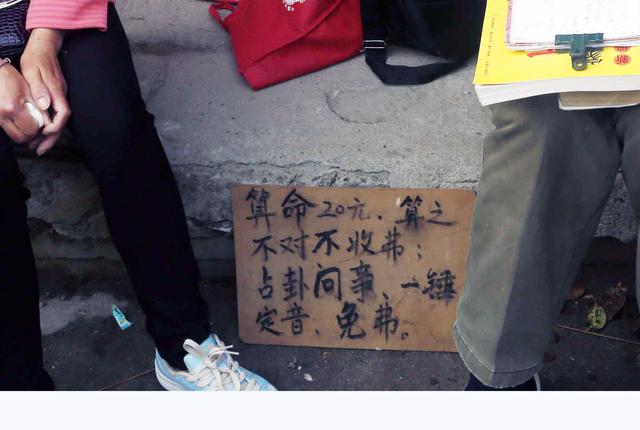 算命20元、算之
不对不收弗；
占卦问事、一锤
定音、免弗。